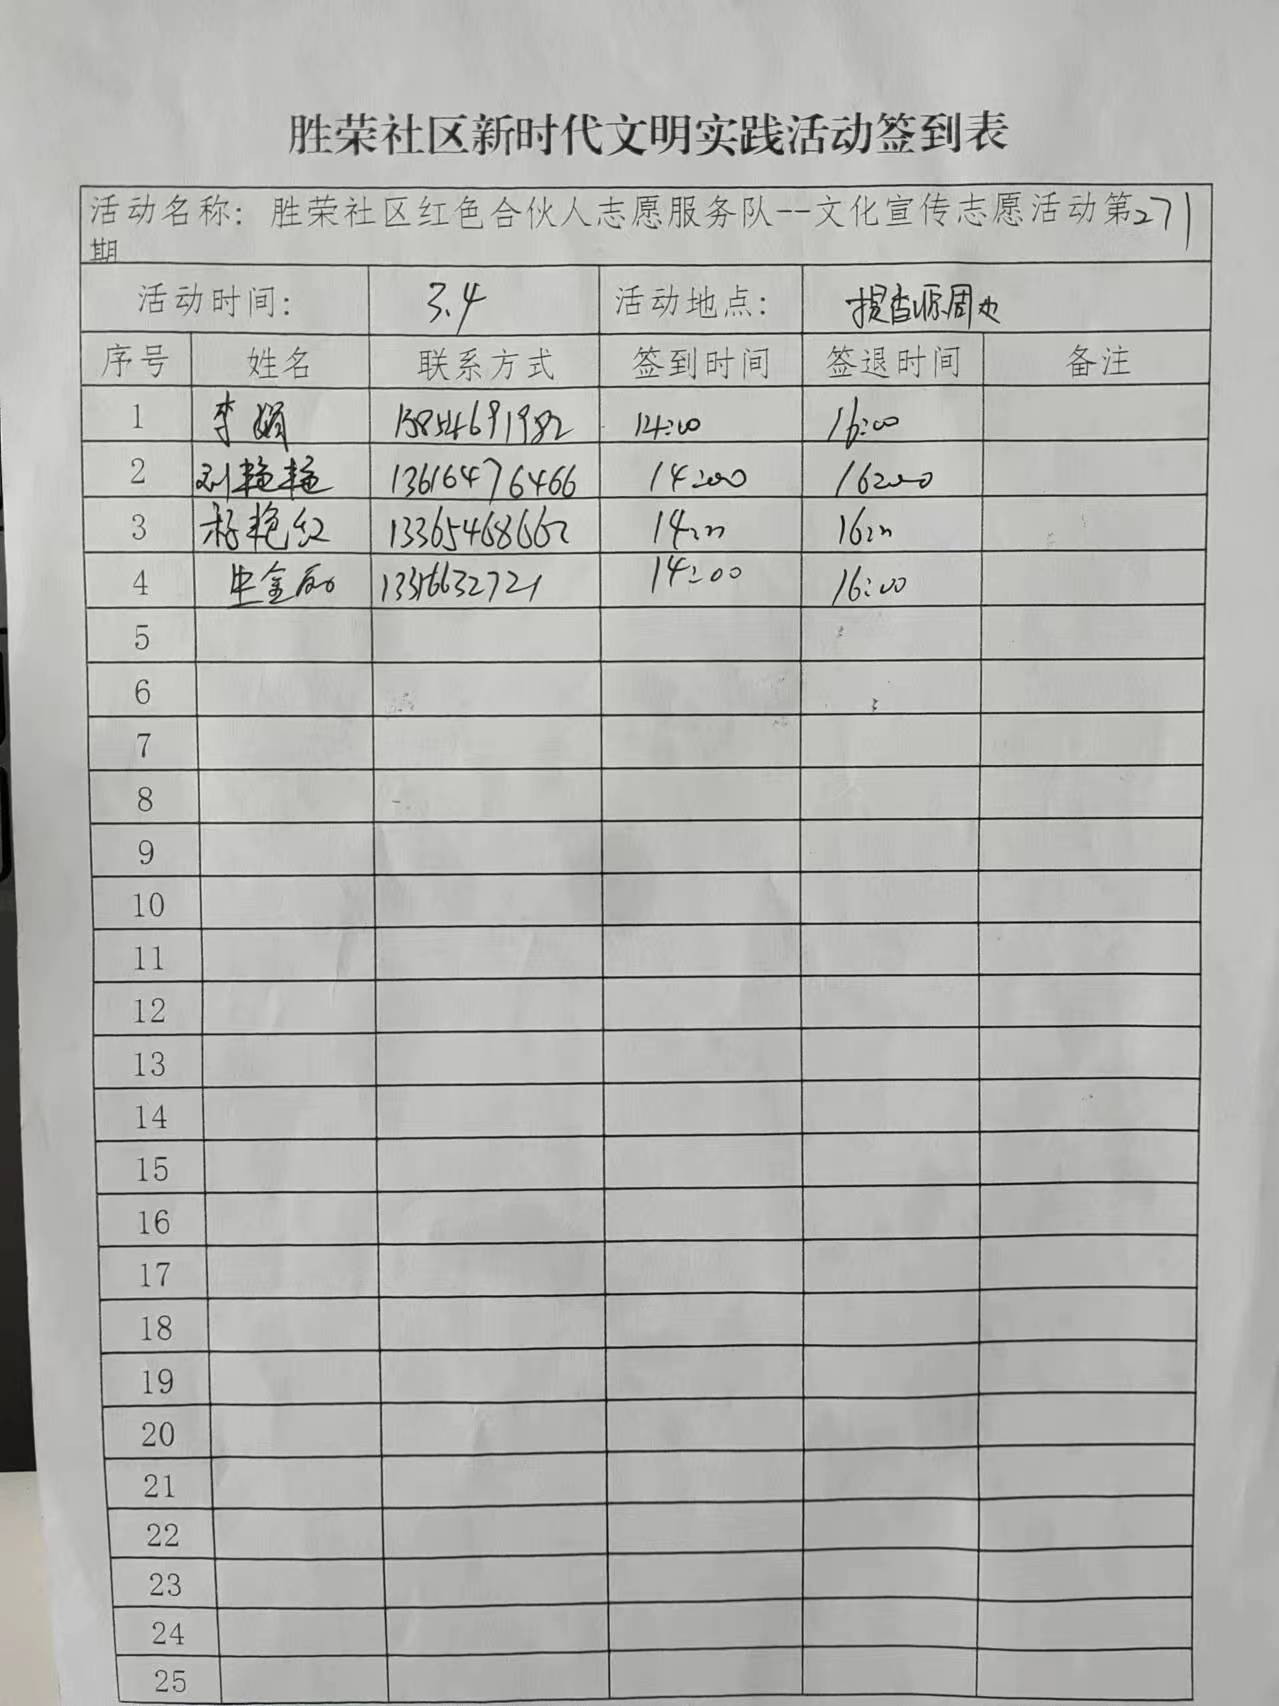 胜荣社区新时代文明实践活动签到表
活动名称：胜荣社区红色合伙人志愿服务队--文化宣传志愿活动第271
期
活动时间： 3.4 活动地点： 周边
序号 姓名 联系方式 签到时间 签退时间 备注
1 李娟 15854691982 14:00 16:00
2 刘艳艳 13616476466 14:00 16:00
3 杨艳红 13365468662 14:00 16:00
4 14:00 16:00
5
6
7
8
9
10
11
12
13
14
15
16
17
18
19
20
21
22
23
24
25